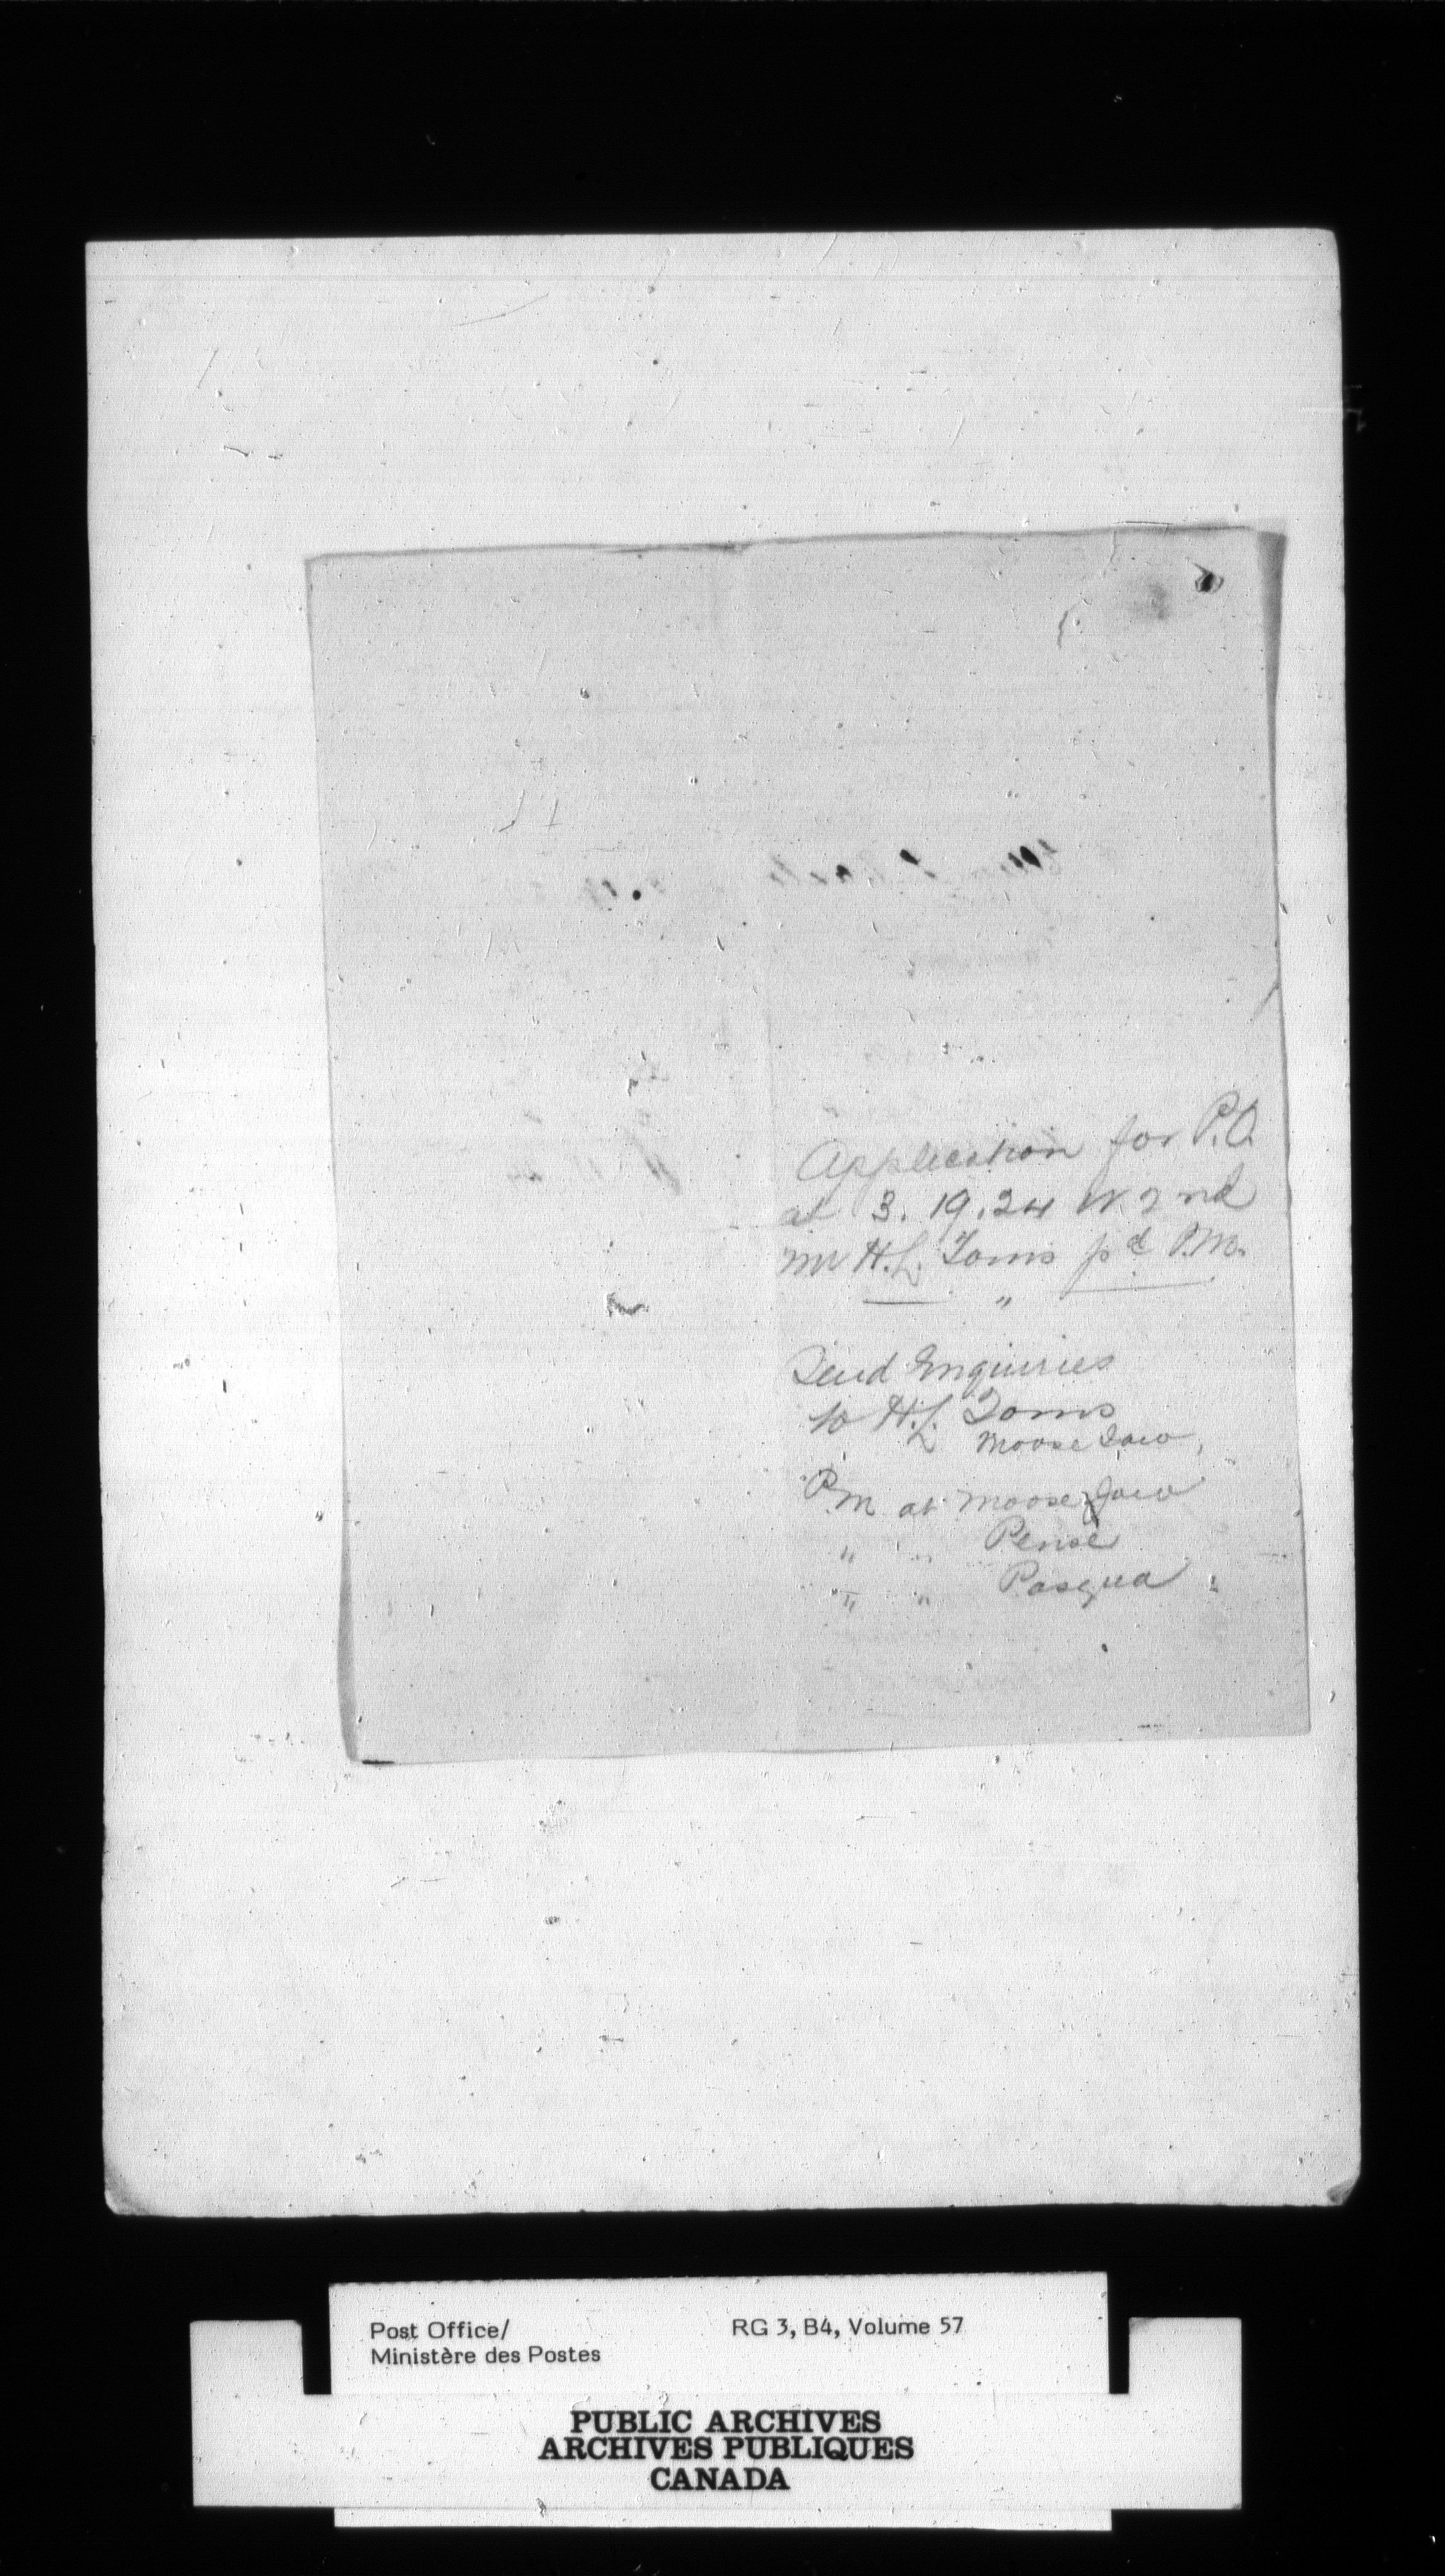 Application for P.O.
at 3. 19. 24 W. 2nd
Mr H.L. Toms pd P.M.
"
Send Enquiries
to H.L. Toms
Moose Jaw,
P.M at Moose Jaw
" " Pense
" " Pasqua
Post Office/
Ministère des Postes
RG 3, B4, Volume 57
PUBLIC ARCHIVES
ARCHIVES PUBLIQUES
CANADA